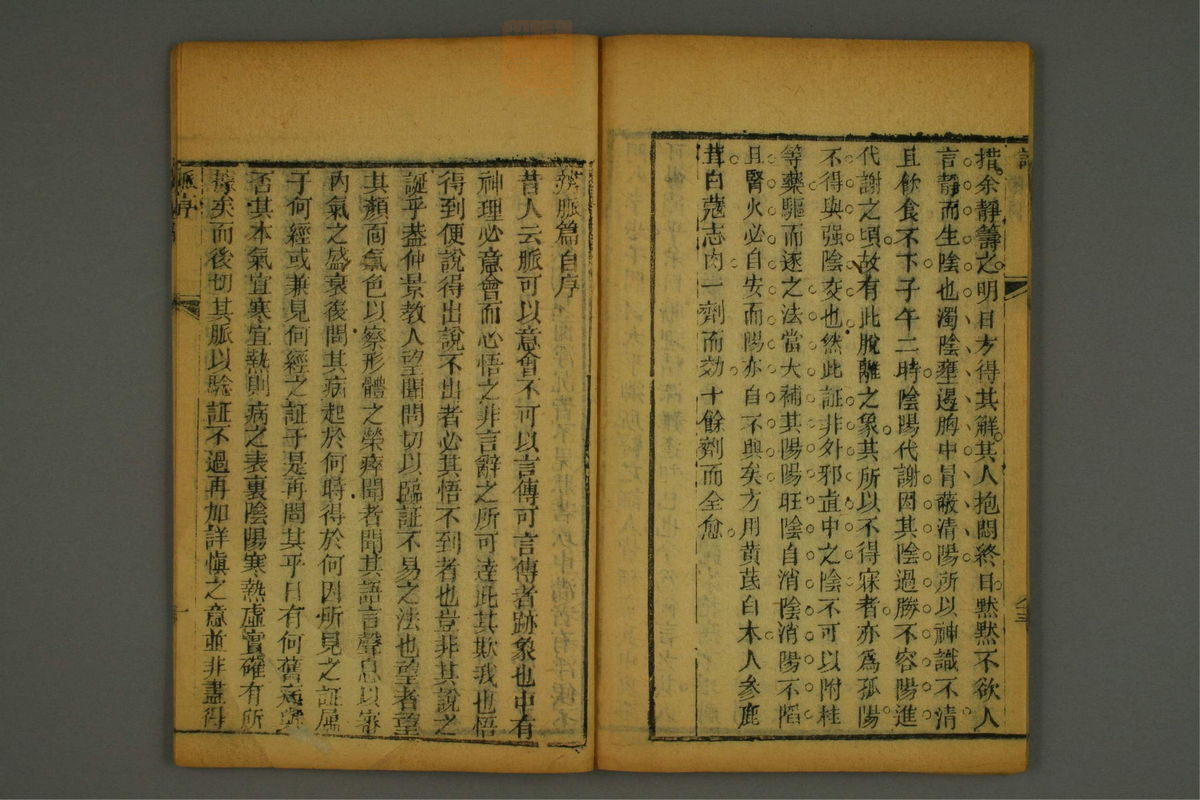 措余靜籌之明日方得其解其人抱悶終日默默不欲人
言靜而生陰也濁陰壅遏胸中冒蔽清陽所以神識不清
且飲食不下子午二時陰陽代謝因其陰過勝不容陽進
代謝之頃故有此脫離之象其所以不得寐者亦爲孤陽
不得與强陰交也然此証非外邪直中之陰不可以附桂
等藥驅而逐之法當大補其陽陽旺陰自消陰消陽不陷
且腎火必自安而陽亦自不興矣方用黄芪白术人參鹿
茸白蔻志肉一劑而効十餘劑而全愈
辨脈篇自序
昔人云脈可以意會不可以言傳可言傳者跡象也中有
神理必意會而心悟之非言辭之所可達此其欺我也悟
得到便說得出說不出者必其悟不到者也豈非其說之
誕乎葢仲景教人望聞問切以臨証不易之法也望者望
其顏面氣色以察形體之榮瘁聞者聞其語言聲息以審
內氣之盛衰後問其病起於何時得於何因所見之証属
于何經或兼見何經之証于是再問其平日有何舊痾
否其本氣宜寒宜熱則病之表裏陰陽寒熱虛實確有所
據矣而後切其脈以驗証不過再加詳愼之意並非盡得
脈序